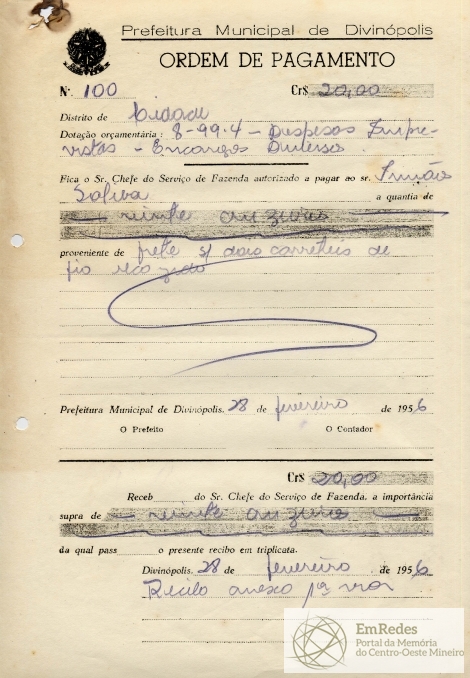 Prefeitura Municipal de Divinópolis
ORDEM DE PAGAMENTO
N.º 100 Cr$ 20,00
Distrito de Cidade
Dotação orçamentária : 8-99-4 - Despesas Impre-
vistas - Encargos Diversos
Fica o Sr. Chefe do Serviço de Fazenda autorizado a pagar ao sr. Irmãos
a quantia de
vinte cruzeiros
proveniente de frete s/ dois carreteis de
fio recozido
Prefeitura Municipal de Divinópolis, 28 de fevereiro de 1956
O Prefeito O Contador
Cr$ 20,00
Receb do Sr. Chefe do Serviço de Fazenda, a importância
supra de vinte cruzeiros
da qual pass o presente recibo em triplicata.
Divinópolis, 28 de fevereiro de 1956
Recibo anexo 1ª via
EmRedes
Portal da Memória
do Centro-Oeste Mineiro